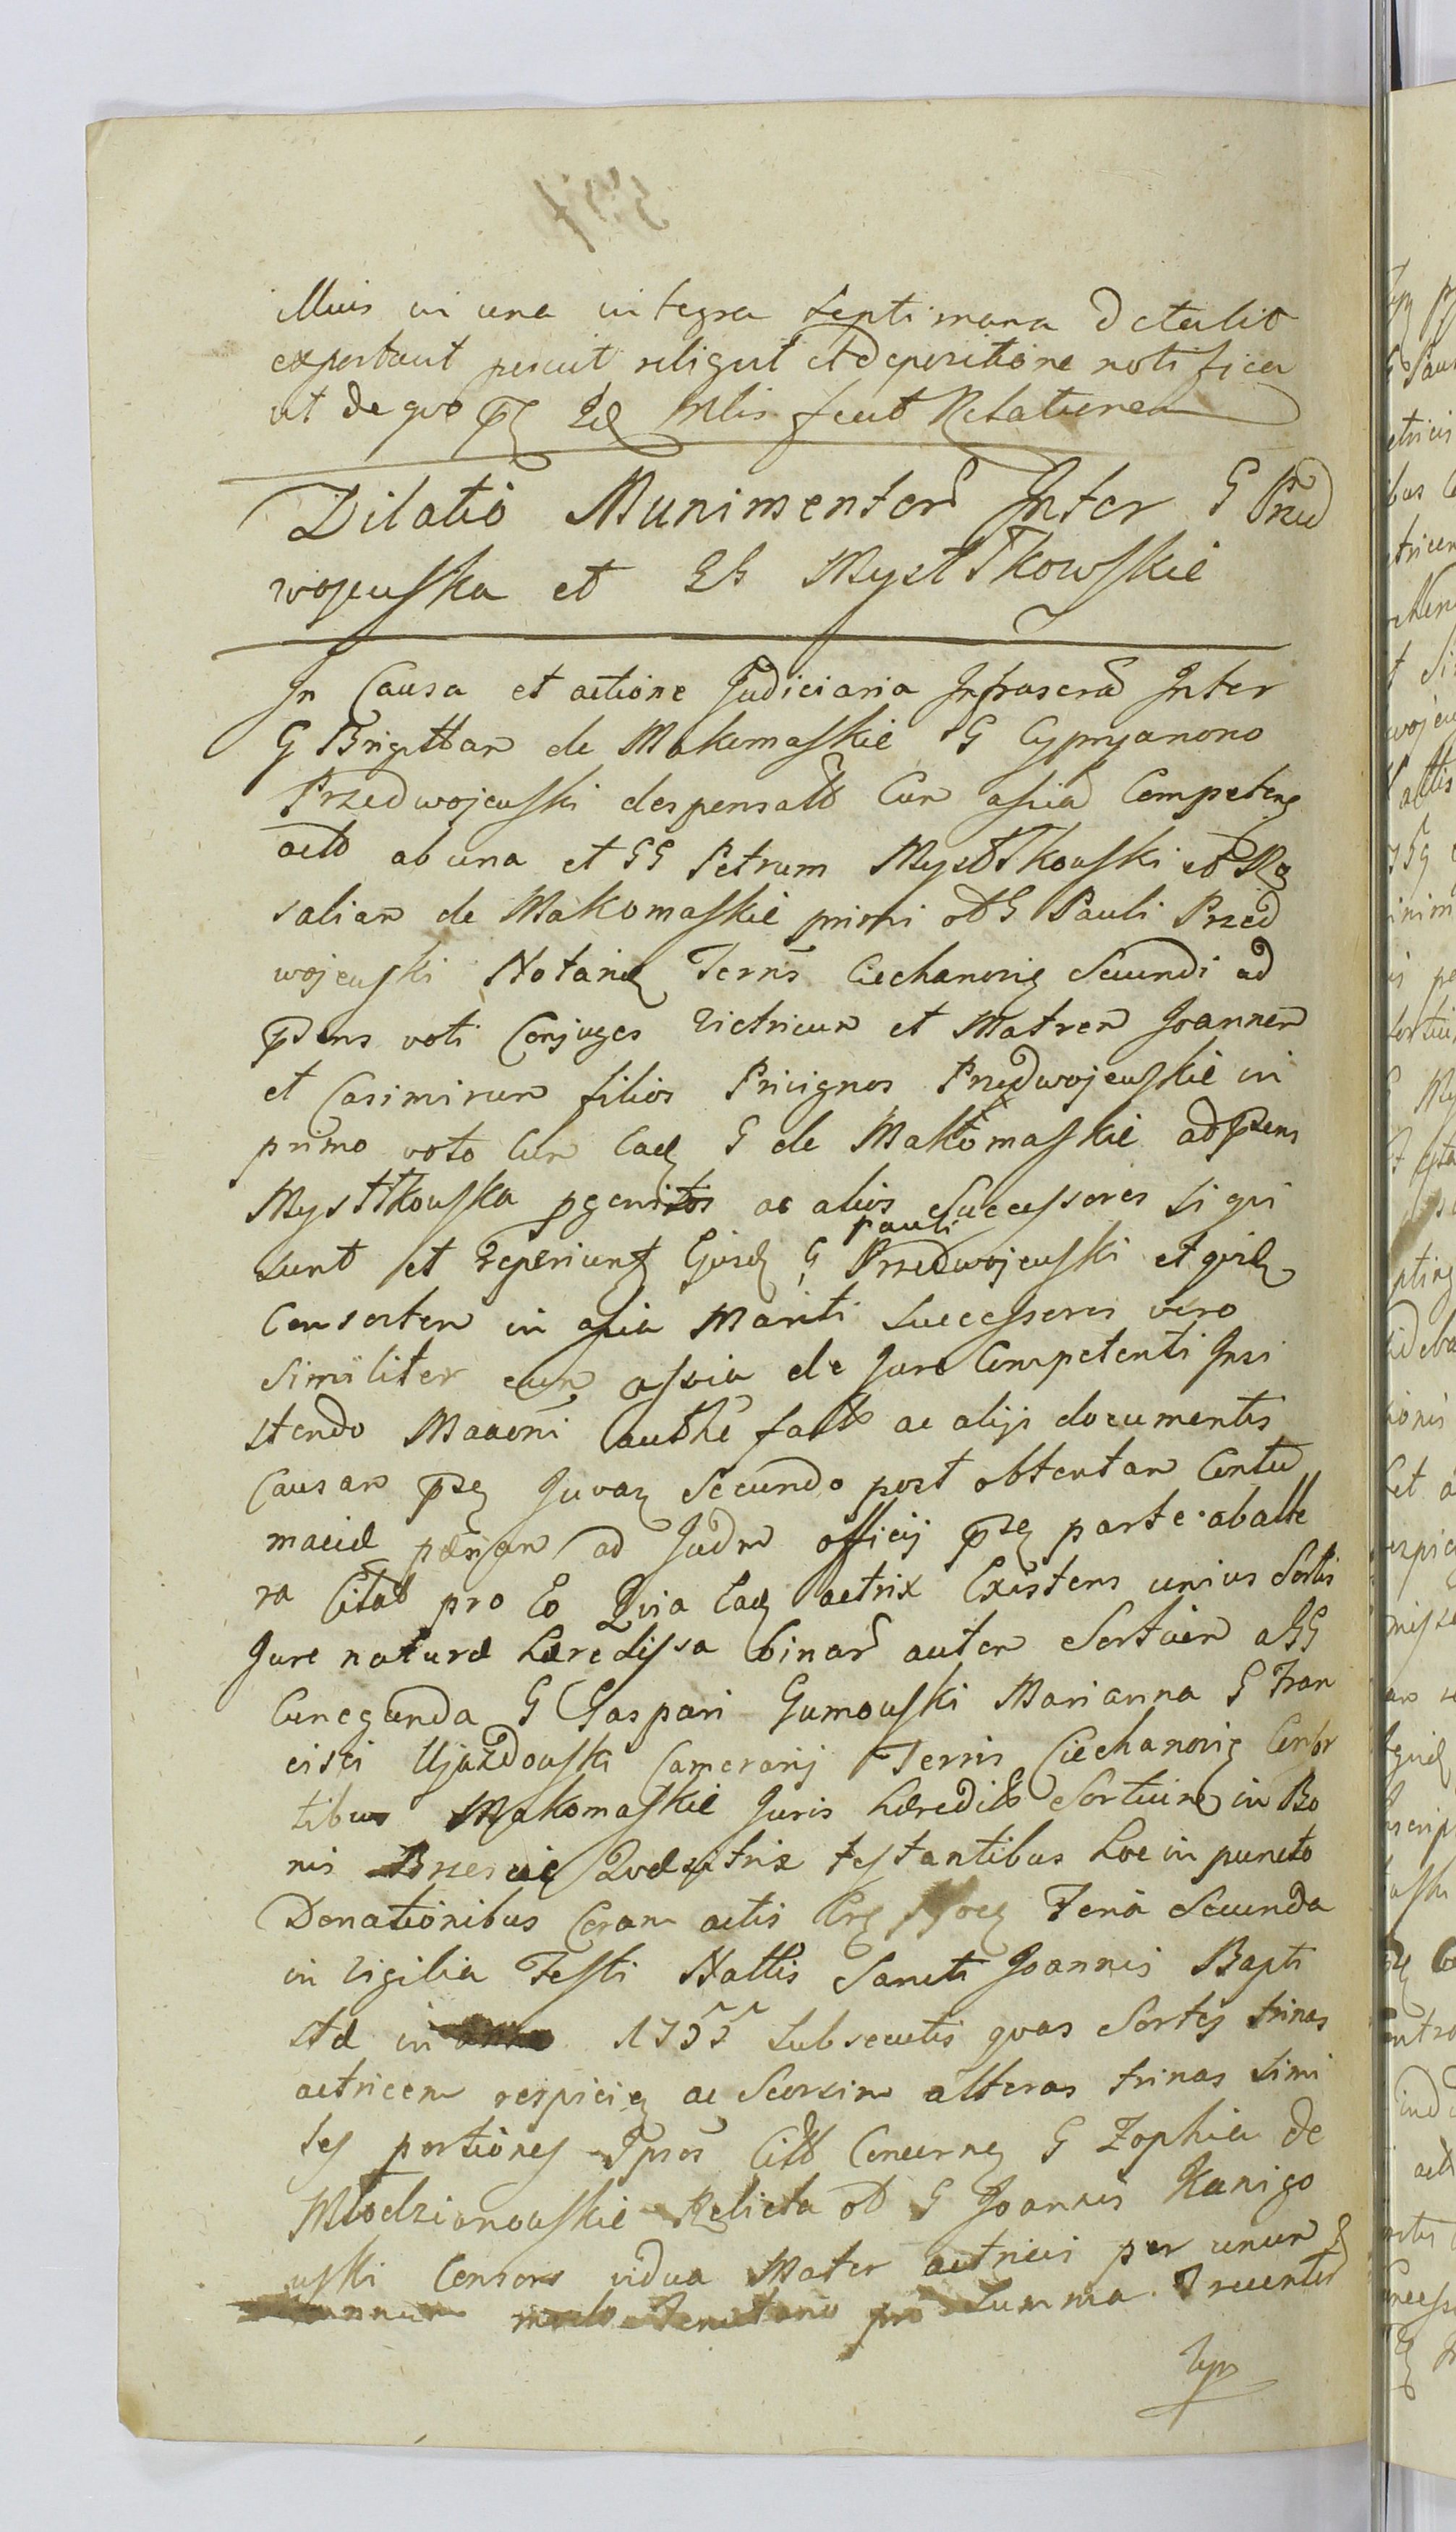 illius in una integra septimana detulit
exportavit posuit reliquit et depositione notifica
vit de quo fecit Relationem
Dilatio Munimentor Inter G Przed
wojewska et GG Mystkowskie
In Causa et actione Judiciaria Infrascra Inter
G Brigittam de Makomaskie G Cypryanono
Przedwojewski desponsatt Cum assia Competeng
actt ab una et GG Petrum Mystkowski et Ro
saliam de Makomaskie primi ott G Pauli Przed
wojewski Notarii Terris Ciechanovig Secundi ad
psens voti Conjuges Victricum et Matrem Joannem
et Casimirum filios Privignos Przedwojewskie in
primo voto Cum Eadq G de Makomaskie ad psens
Mystkowska pgenitos ac alios Successores si qui
sunt et reperiunt Ejusd G Pauli Przedwojewski et quid
Consortem in assia Mariti Successores vero
similiter cum assia de Jure Competenti Insi
stendo Maaoni Cauthe fatt ac alijs documentis
Causam pseq Juvan Secundo post obtentam Contu
macie penam ad Judm officij pseq parte ab alte
ra Citatt pro Eo Quia Eadq actrix Existens unius Sortis
Jure nature hæredissa binar autem Sortium a GG
Cunegunda G Gaspari Gumowski Marianna G Fran
cisci Ujazdowski Camerarij Terris Ciechanovig Consor
tibus Makomaskie Juris hæreditt Sortium in Bo
nis Brzescie Quæsitrix testantibus hoc in puncto
Donationibus Coram actis Feria Secunda
in Vigilia Festi Nattis Sancti Joannis Bapti
stæ in 1755 subsecutis quas Sortes trinas
actricem respicieq ac Seorsim alteras trinas simi
les portiones Ipsos Citt Concerneq G Zophia de
Młodzianowskie Relicta ott G Joannis Kanigo
wski Consors vidua Mater actricis per unum
annum modo Tenutario pro Summa Trecentor